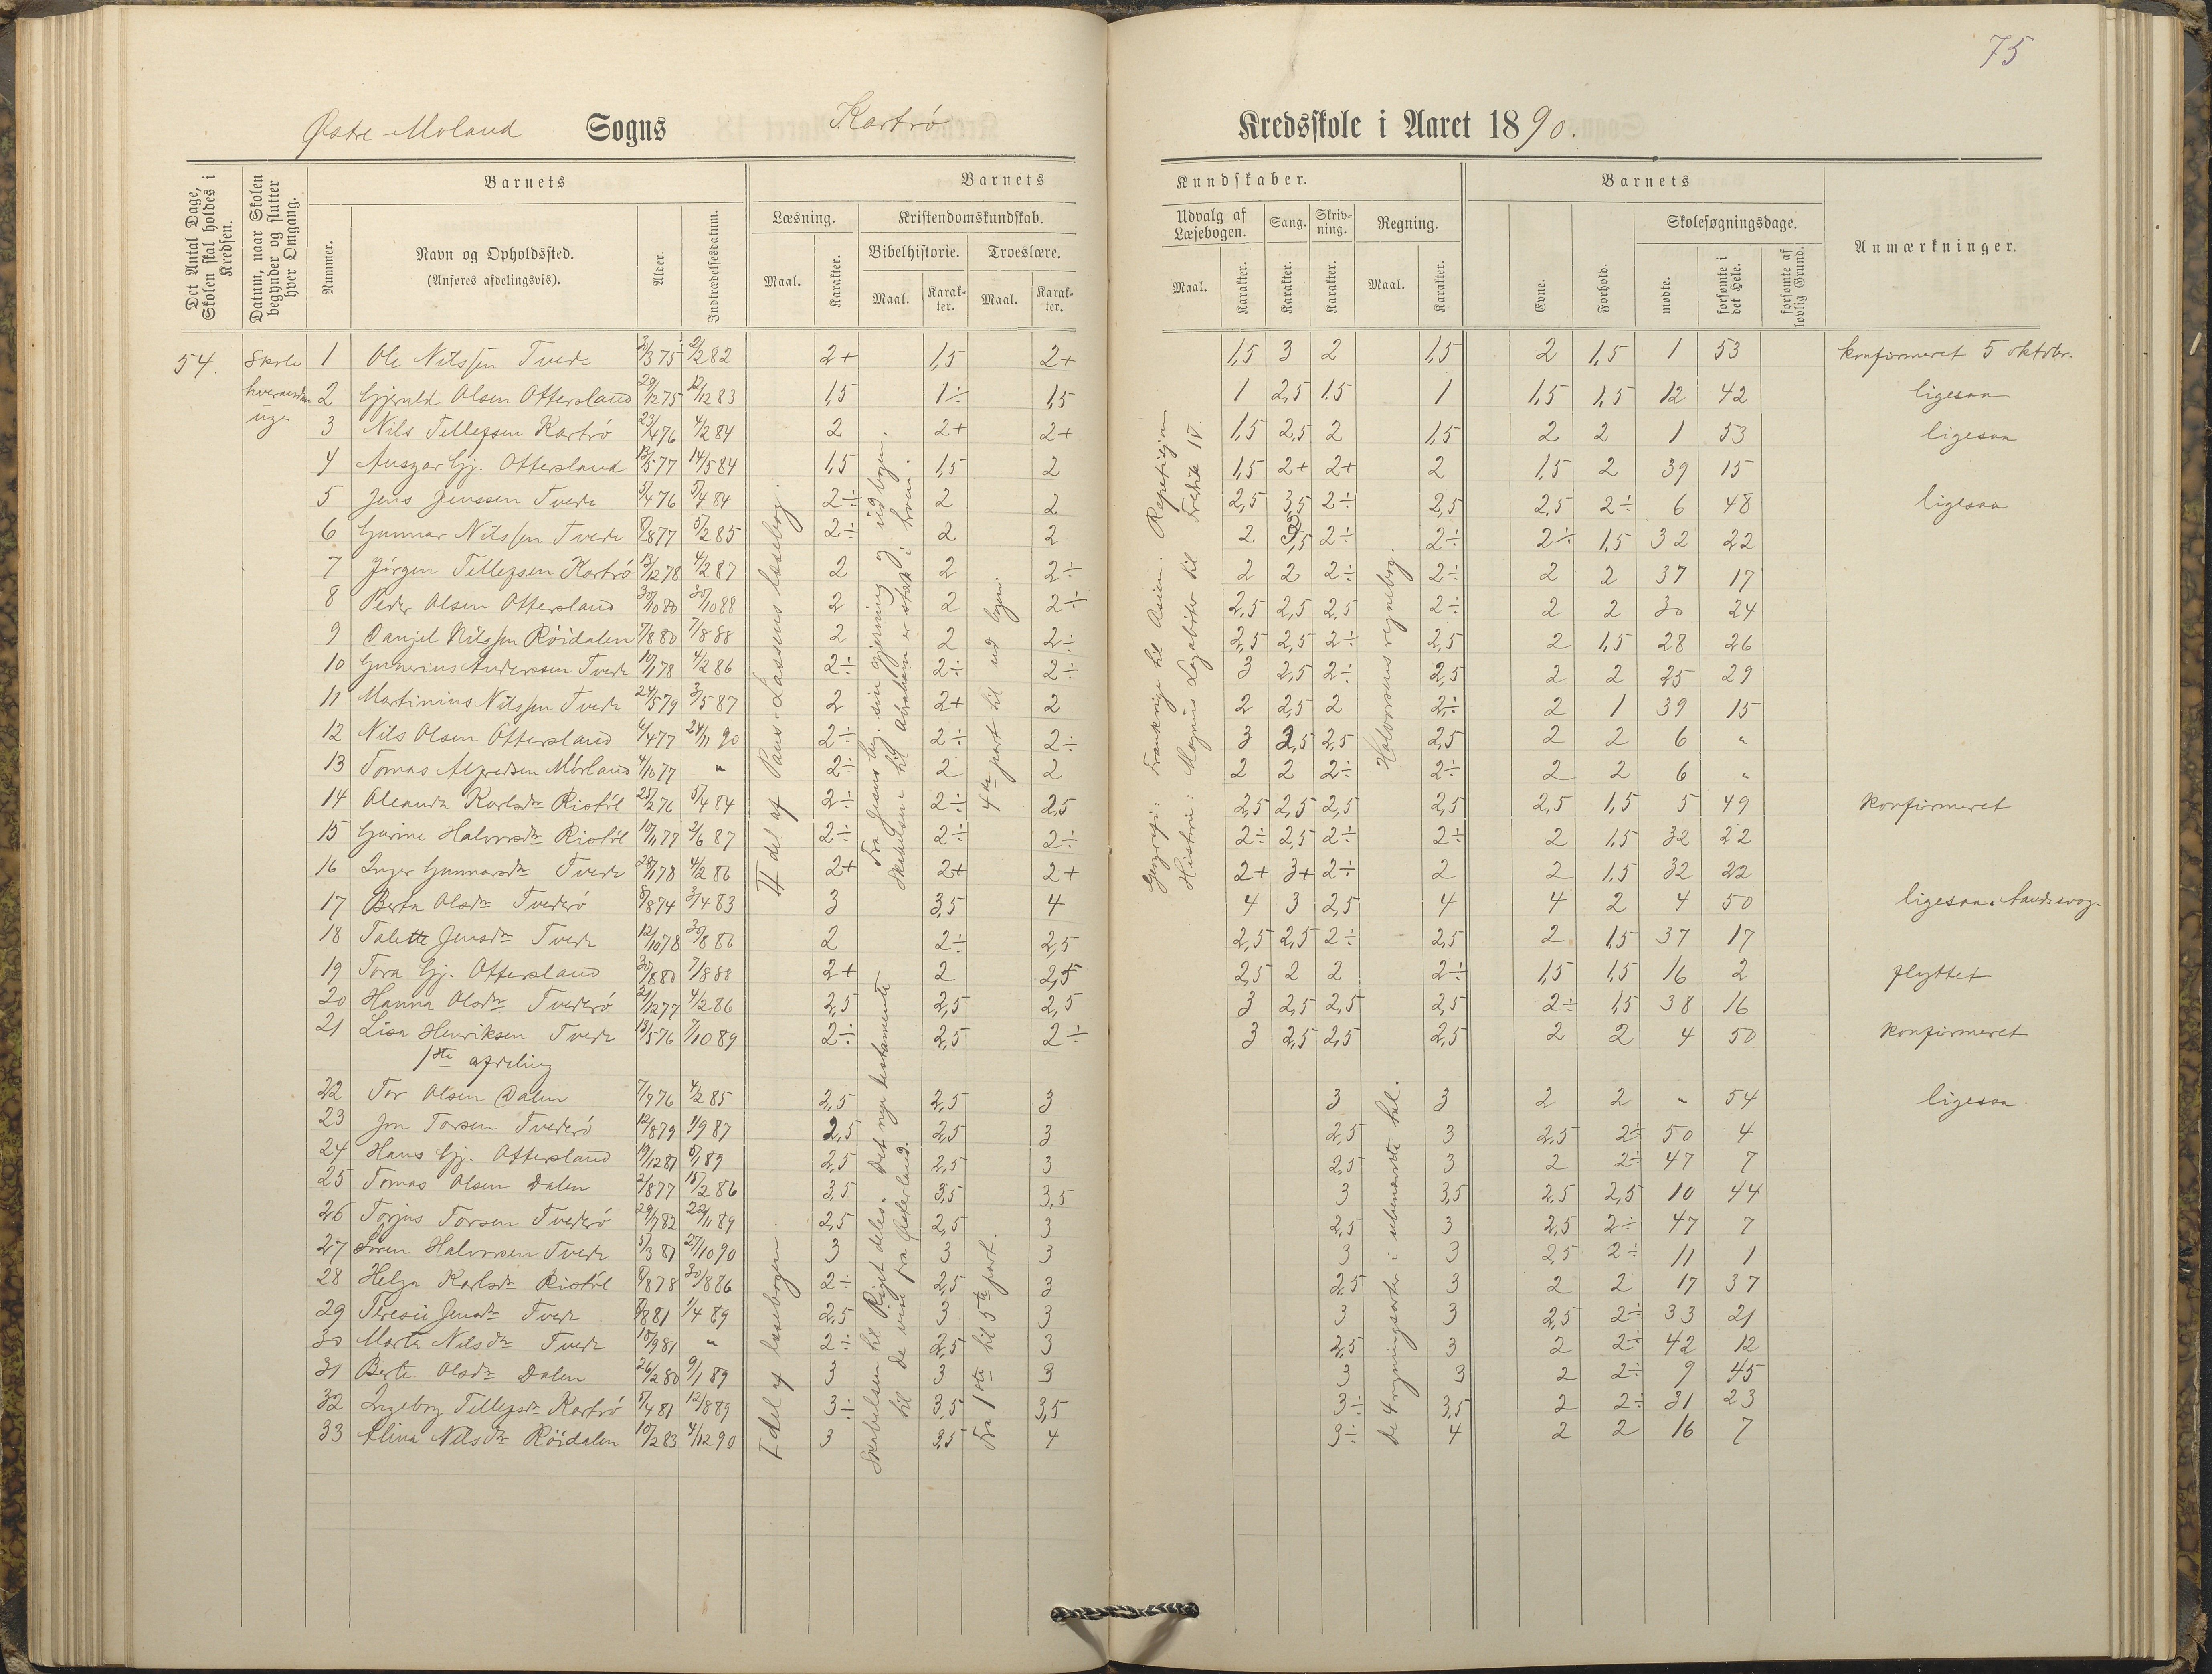 75
Østre Moland Sogns Kartrø Kredsskole i Aaret 1890.
Det Antal Dage, Skolen skal holdes i Kredsen.
Datum, naar Skolen begynder og slutter hver Omgang.
Barnets
Nummer.
Navn og Opholdssted.
(Anføres afdelingsvis).
Alder.
Indtrædelsesdatum.
Barnets Kundskaber.
Læsning.
Maal. Karakter.
Kristendomskundskab.
Bibelhistorie. Troeslære.
Maal. Karakter. Maal. Karakter.
Udvalg af Læsebogen.
Maal. Karakter.
Sang.
Karakter.
Skrivning.
Karakter.
Regning.
Maal. Karakter.
Barnets
Evne. Forhold.
Skolesøgningsdage.
mødte. forsømte i det Hele. forsømte af lovlig Grund.
Anmærkninger.
54. Skole hveranden uge
1 Ole Nilssen Tvede 3/3 75 2/2 82 2+ 1,5 2+ 1,5 3 2 1,5 2 1,5 1 53 konfirmeret 5 oktober.
2 Gjeruld Olsen Ottersland 29/12 75 12/12 83 1,5 1÷ 1,5 1 2,5 1.5 1 1,5 1,5 12 42 ligesaa
3 Nils Tellefsen Kartrø 23/4 76 4/2 84 2 2+ 2+ 1,5 2,5 2 1,5 2 2 1 53 ligesaa
4 Ansgar Gj. Ottersland 13/5 77 14/5 84 1,5 1,5 2 1,5 2+ 2+ 2 1,5 2 39 15
5 Jens Jenssen Tvede 5/4 76 5/4 84 2÷ 2 2 2,5 3,5 2÷ 2,5 2,5 2÷ 6 48 ligesaa
6 Gunnar Nilssen Tvede 8/8 77 5/2 85 2÷ 2 2 2 3,5 2÷ 2÷ 2÷ 1,5 32 22
7 Jørgen Tellefsen Kartrø 13/12 78 4/2 87 2 2 2÷ 2 2 2÷ 2÷ 2 2 37 17
8 Peder Olsen Ottersland 30/10 80 30/10 88 2 2 2÷ 2,5 2,5 2,5 2÷ 2 2 30 24
9 Danjel Nilssen Røidalen 7/8 80 7/8 88 2 2 2÷ 2,5 2,5 2÷ 2,5 2 1,5 28 26
10 Gunerius Anderssen Tvede 10/1 78 4/2 86 2÷ 2÷ 2÷ 3 2,5 2÷ 2,5 2 2 25 29
11 Martinius Nilssen Tvede 24/5 79 3/5 87 2 2+ 2 2 2,5 2 2÷ 2 1 39 15
12 Nils Olsen Ottersland 6/4 77 24/11 90 2÷ 2÷ 2÷ 3 2,5 2,5 2,5 2 2 6 "
13 Tomas Alfredsen Mørland 4/10 77 " 2÷ 2 2 2 2 2÷ 2÷ 2 2 6 "
14 Oleanda Karlsdtr Ristøl 25/2 76 5/4 84 2÷ 2÷ 2,5 2,5 2,5 2,5 2,5 2,5 1,5 5 49 konfirmeret
15 Gurine Halvorsdtr Ristøl 10/11 77 2/6 87 2÷ 2÷ 2÷ 2÷ 2,5 2÷ 2÷ 2 1,5 32 22
16 Inger Gunnarsdtr Tvede 28/1 78 4/2 86 2+ 2+ 2+ 2+ 3+ 2÷ 2 2 1,5 32 22
17 Berta Olsdtr Tvederø 8/8 74 3/4 83 3 3,5 4 4 3 2,5 4 4 2 4 50 ligesaa. Aandssvag.
18 Talette Jensdtr Tvede 12/10 78 30/8 86 2 2÷ 2,5 2,5 2,5 2÷ 2,5 2 1,5 37 17
19 Tora Gj. Ottersland 30/8 80 7/8 88 2+ 2 2,5 2,5 2 2 2÷ 1,5 1,5 16 2 flyttet
20 Hanna Olsdtr Tvederø 21/12 77 4/2 86 2,5 2,5 2,5 3 2,5 2,5 2,5 2÷ 1,5 38 16
21 Lisa Henriksen Tvede 13/5 76 7/10 89 2÷ 2,5 2÷ 3 2,5 2,5 2,5 2 2 4 50 konfirmeret
1ste afdeling
22 Tor Olsen Dalen 7/7 76 4/2 85 2,5 2,5 3 3 3 2 2 " 54 ligesaa.
23 Jon Torsen Tvederø 12/8 79 1/9 87 2,5 2,5 3 2,5 3 2,5 2÷ 50 4
24 Hans Gj. Ottersland 19/12 81 5/1 89 2,5 2,5 3 2,5 3 2 2÷ 47 7
25 Tomas Olsen Dalen 2/8 77 15/2 86 3,5 3,5 3,5 3 3,5 2,5 2,5 10 44
26 Torjus Torsen Tvederø 29/7 82 22/11 89 2,5 2,5 3 2,5 3 2,5 2÷ 47 7
27 Søren Halvorsen Tvede 5/3 81 27/10 90 3 3 3 3 3 2,5 2÷ 11 1
28 Helga Karlsdtr Ristøl 8/8 78 30/8 86 2÷ 2,5 3 2,5 3 2 2 17 37
29 Teresie Jensdtr Tvede 8/8 81 1/4 89 2,5 3 3 3 3 2,5 2÷ 33 21
30 Marta Nilsdtr Tvede 18/9 81 " 2÷ 2,5 3 2,5 3 2 2÷ 42 12
31 Berte Olsdtr Dalen 26/2 80 9/1 89 3 3 3 3 3 2 2÷ 9 45
32 Ingeborg Tellefsdr Kartrø 5/4 81 12/8 89 3÷ 3,5 3,5 3÷ 3,5 2 2÷ 31 23
33 Alina Nilsdtr Røidalen 10/2 83 4/12 90 3 3,5 4 3÷ 4 2 2 16 7
II del af Paus-Lassens læsebog.
Fra Jesus beg. sin gjerning og ud bogen.
Skabelsen til Abraham er stærk i troen.
4de part til ud bogen.
Geografi: Frankrige til Asien. Repetisjon
Histori: Magnus Lagabøter til Fredrik IV.
Halvorsens regnebog.
I del af læsebogen.
Skabelsen til Riget deles. Det nye testamente
til de vise fra Østerland.
Fra 1ste til 5te part.
De 4 regningsarter i ubenævnte tal.